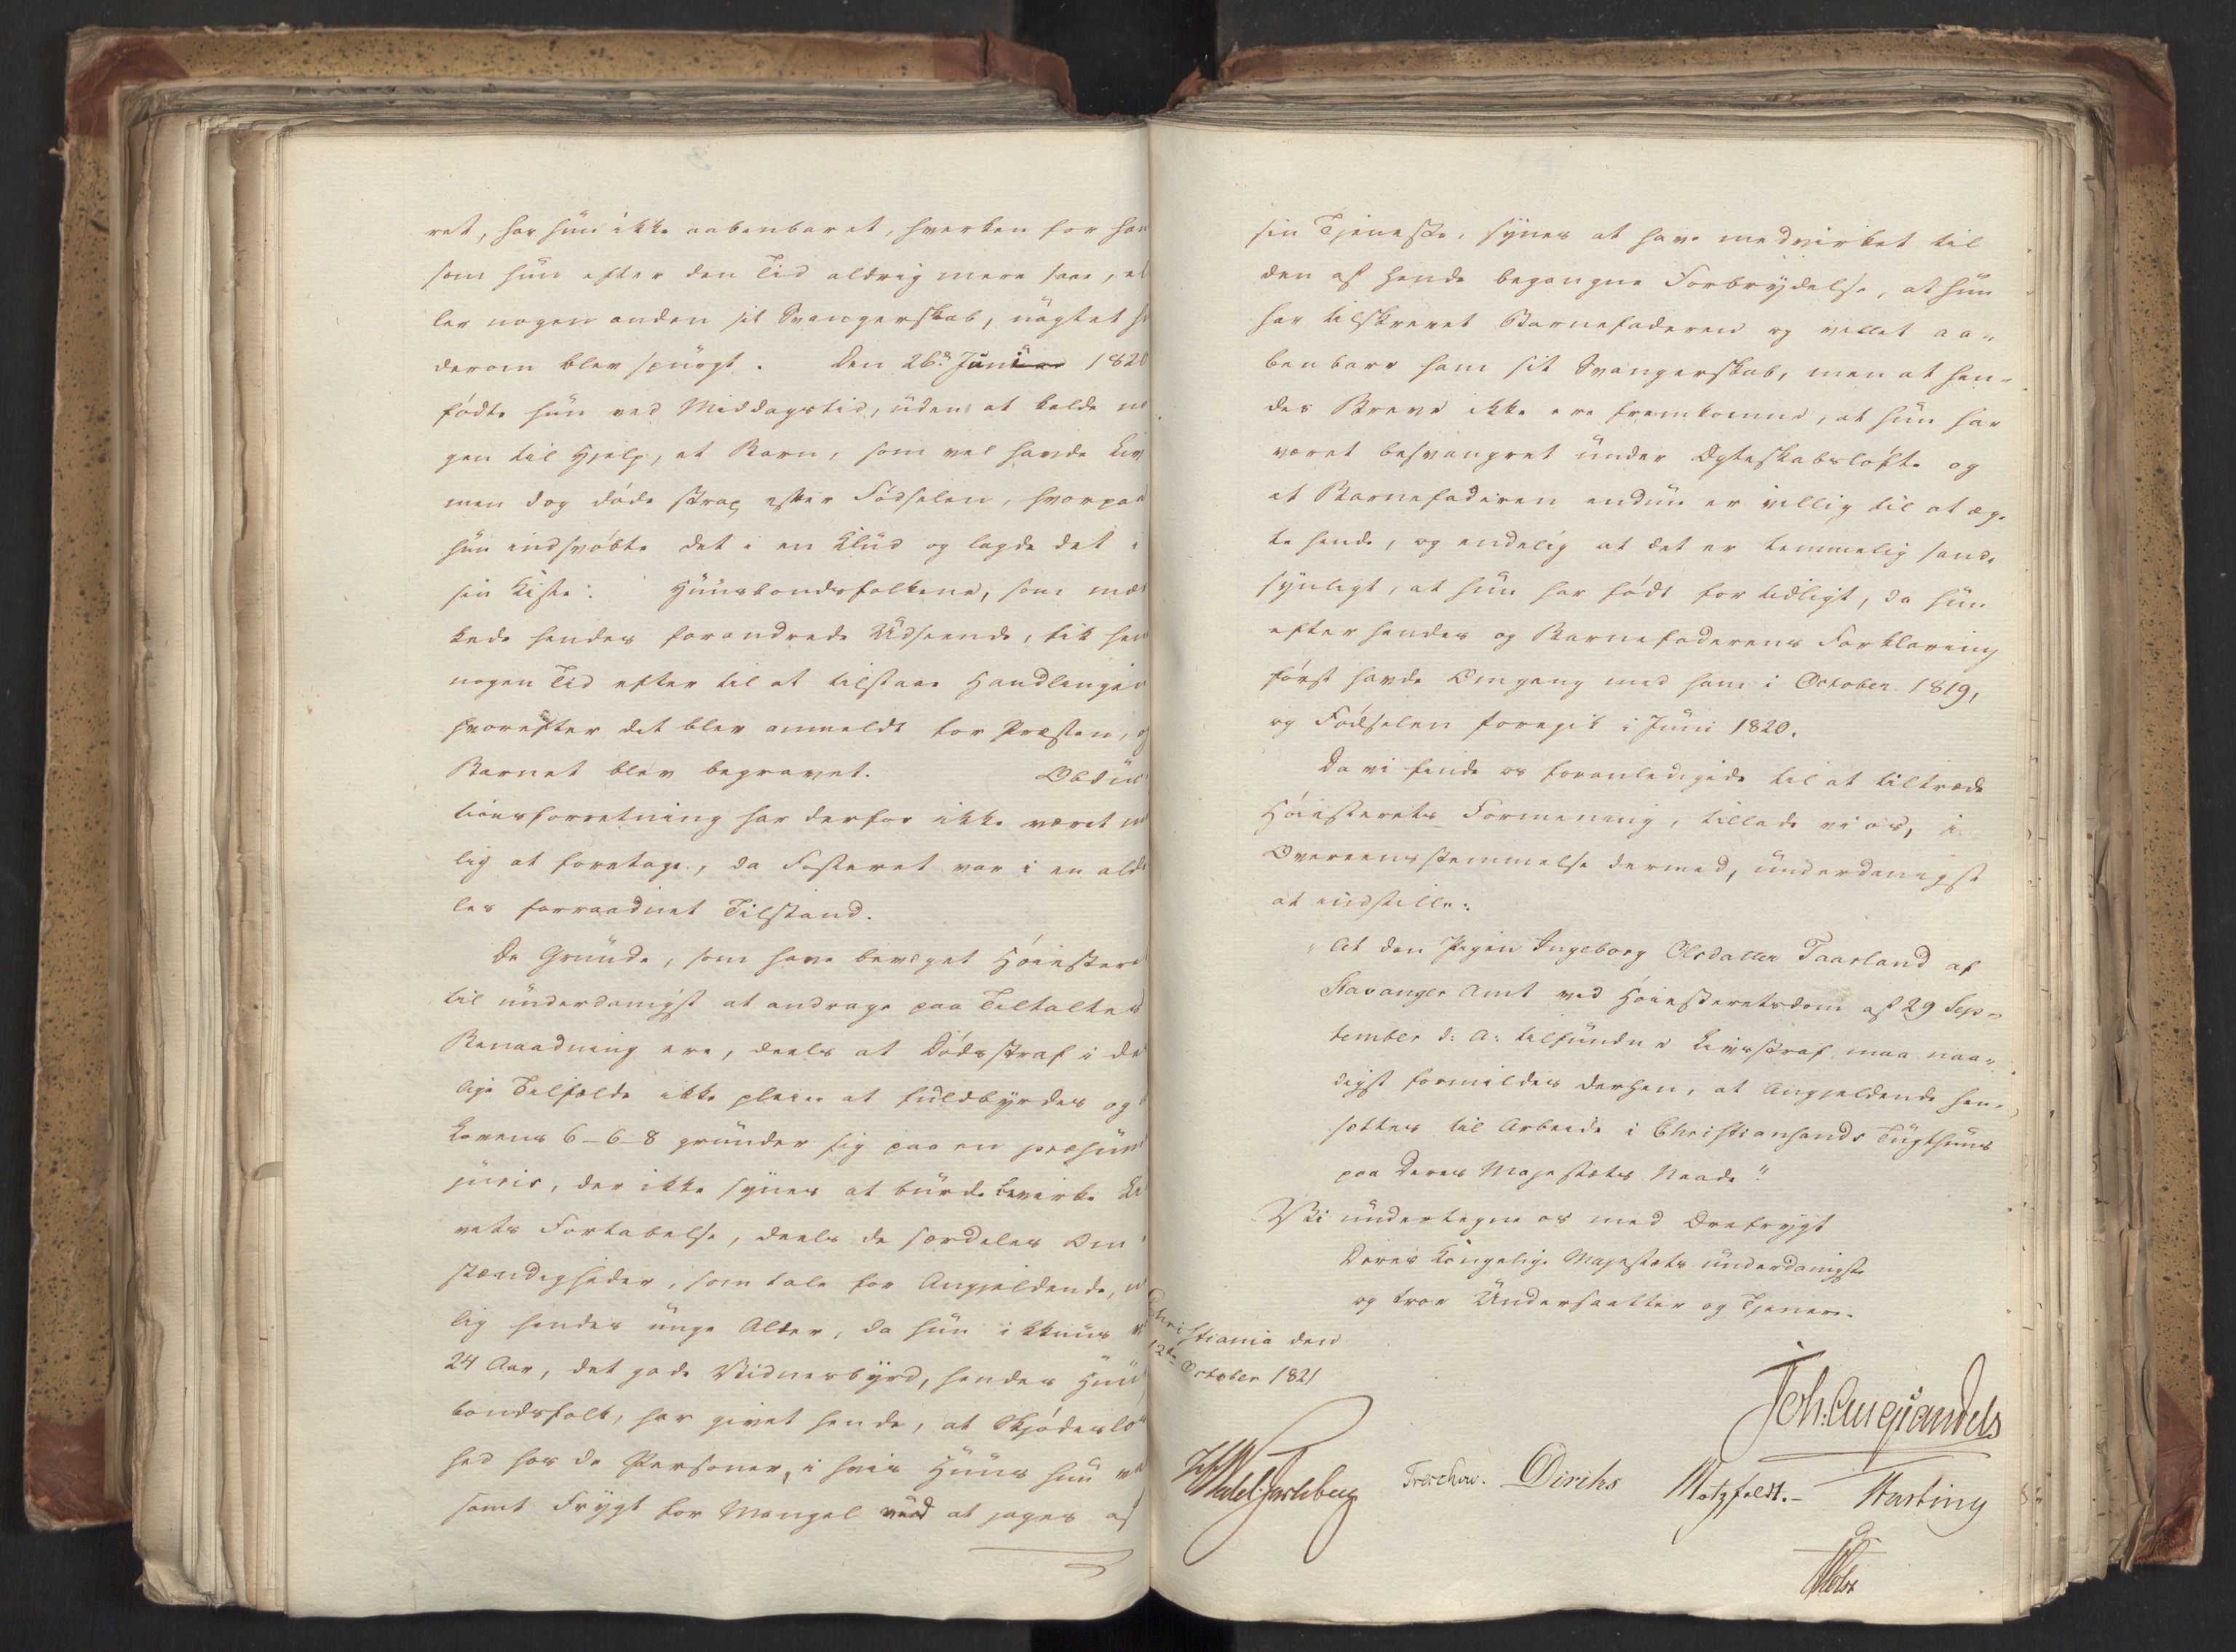 ret, har hun ikke aabenbaret, hverken for ham
som hun efter den Tid aldrig mere saae, el
ler nogen anden sit Svangerskab, uagtet hu
derom blev spurgt. Den 26. Juni 1820
fødte hun ved Middagstid, uden at kalde no
gen til Hjelp, et Barn, som vel havde Liv
men dog døde strax efter Fødselen, hvorpaa
hun indsvøbte det i en Klud og lagde det i
sin Kiste. Huusbondsfolkene, som mær
kede hendes forandrede Udseende, fik hen
nogen Tid efter til at tilstaae Handlingen
hvorefter det blev anmeldt for Præsten, og
Barnet blev begravet. Obduc
tionsforretning har derfor ikke været mu
lig at foretage, da Fosteret var i en alde
les forraadnet Tilstand.
De Grunde, som have bevæget Høiestere
til underdanigst at andrage paa Tiltaltes
Benaadning ere, deels at Dødsstraf i des
lige Tilfælde ikke pleier at fuldbyrdes og
Lovens 6-6-8 grunder sig paa en præsum
juris, der ikke synes at burde bevirke Li
vets Fortabelse, deels de særdeles Om
stændigheder, som tale for Angjeldende, n
lig hendes unge Alder, da hun ikkuns v
24 Aar, det gode Vidnesbyrd, hendes Huu
bondsfolk, har givet hende, at Skjødeslø
hed hos de Personer, i hvis Huus hun va
samt Frygt for Mangel ved at jages af
sin Tjeneste, synes at have medvirket til
den af hende begangne Forbrydelse, at hun
har tilskrevet Barnefaderen og villet aa-
benbare ham sit Svangerskab, men at hen-
des Breve ikke ere fremkomne, at hun har
været besvangret under Ægteskabsløfte og
at Barnefaderen endnu er villig til at æg-
te hende, og endelig at det er temmelig sand-
synligt, at hun har født for tidligt, da hun
efter hendes og Barnefaderens Forklaring
først havde Omgang med ham i October 1819,
og Fødselen foregik i Juni 1820.
Da vi finde os foranledigede til at tiltræde
Høiesterets Formening, tillade vi os, i
Overeensstemmelse dermed, underdanigst
at indstille:
"At den Pigen Ingeborg Olsdatter Taarland af
Stavanger Amt ved Høiesteretsdom af 29 Sep-
tember d: A: tilfundne Livsstraf maa naa-
digst formildes derhen, at Angjeldende hen-
sættes til Arbeide i Christiansands Tugthuus
paa Deres Majestæts Naade"
Vi undertegne os med Ærefrygt
Deres Kongelige Majestæts underdanigste
og troe Undersaatter og Tjenere.
Christiania den
12te October 1821
Joh: Aug: Sandels
HWedel Jarlsberg Treschow. Diriks Motzfeldt.- Fasting
Holst